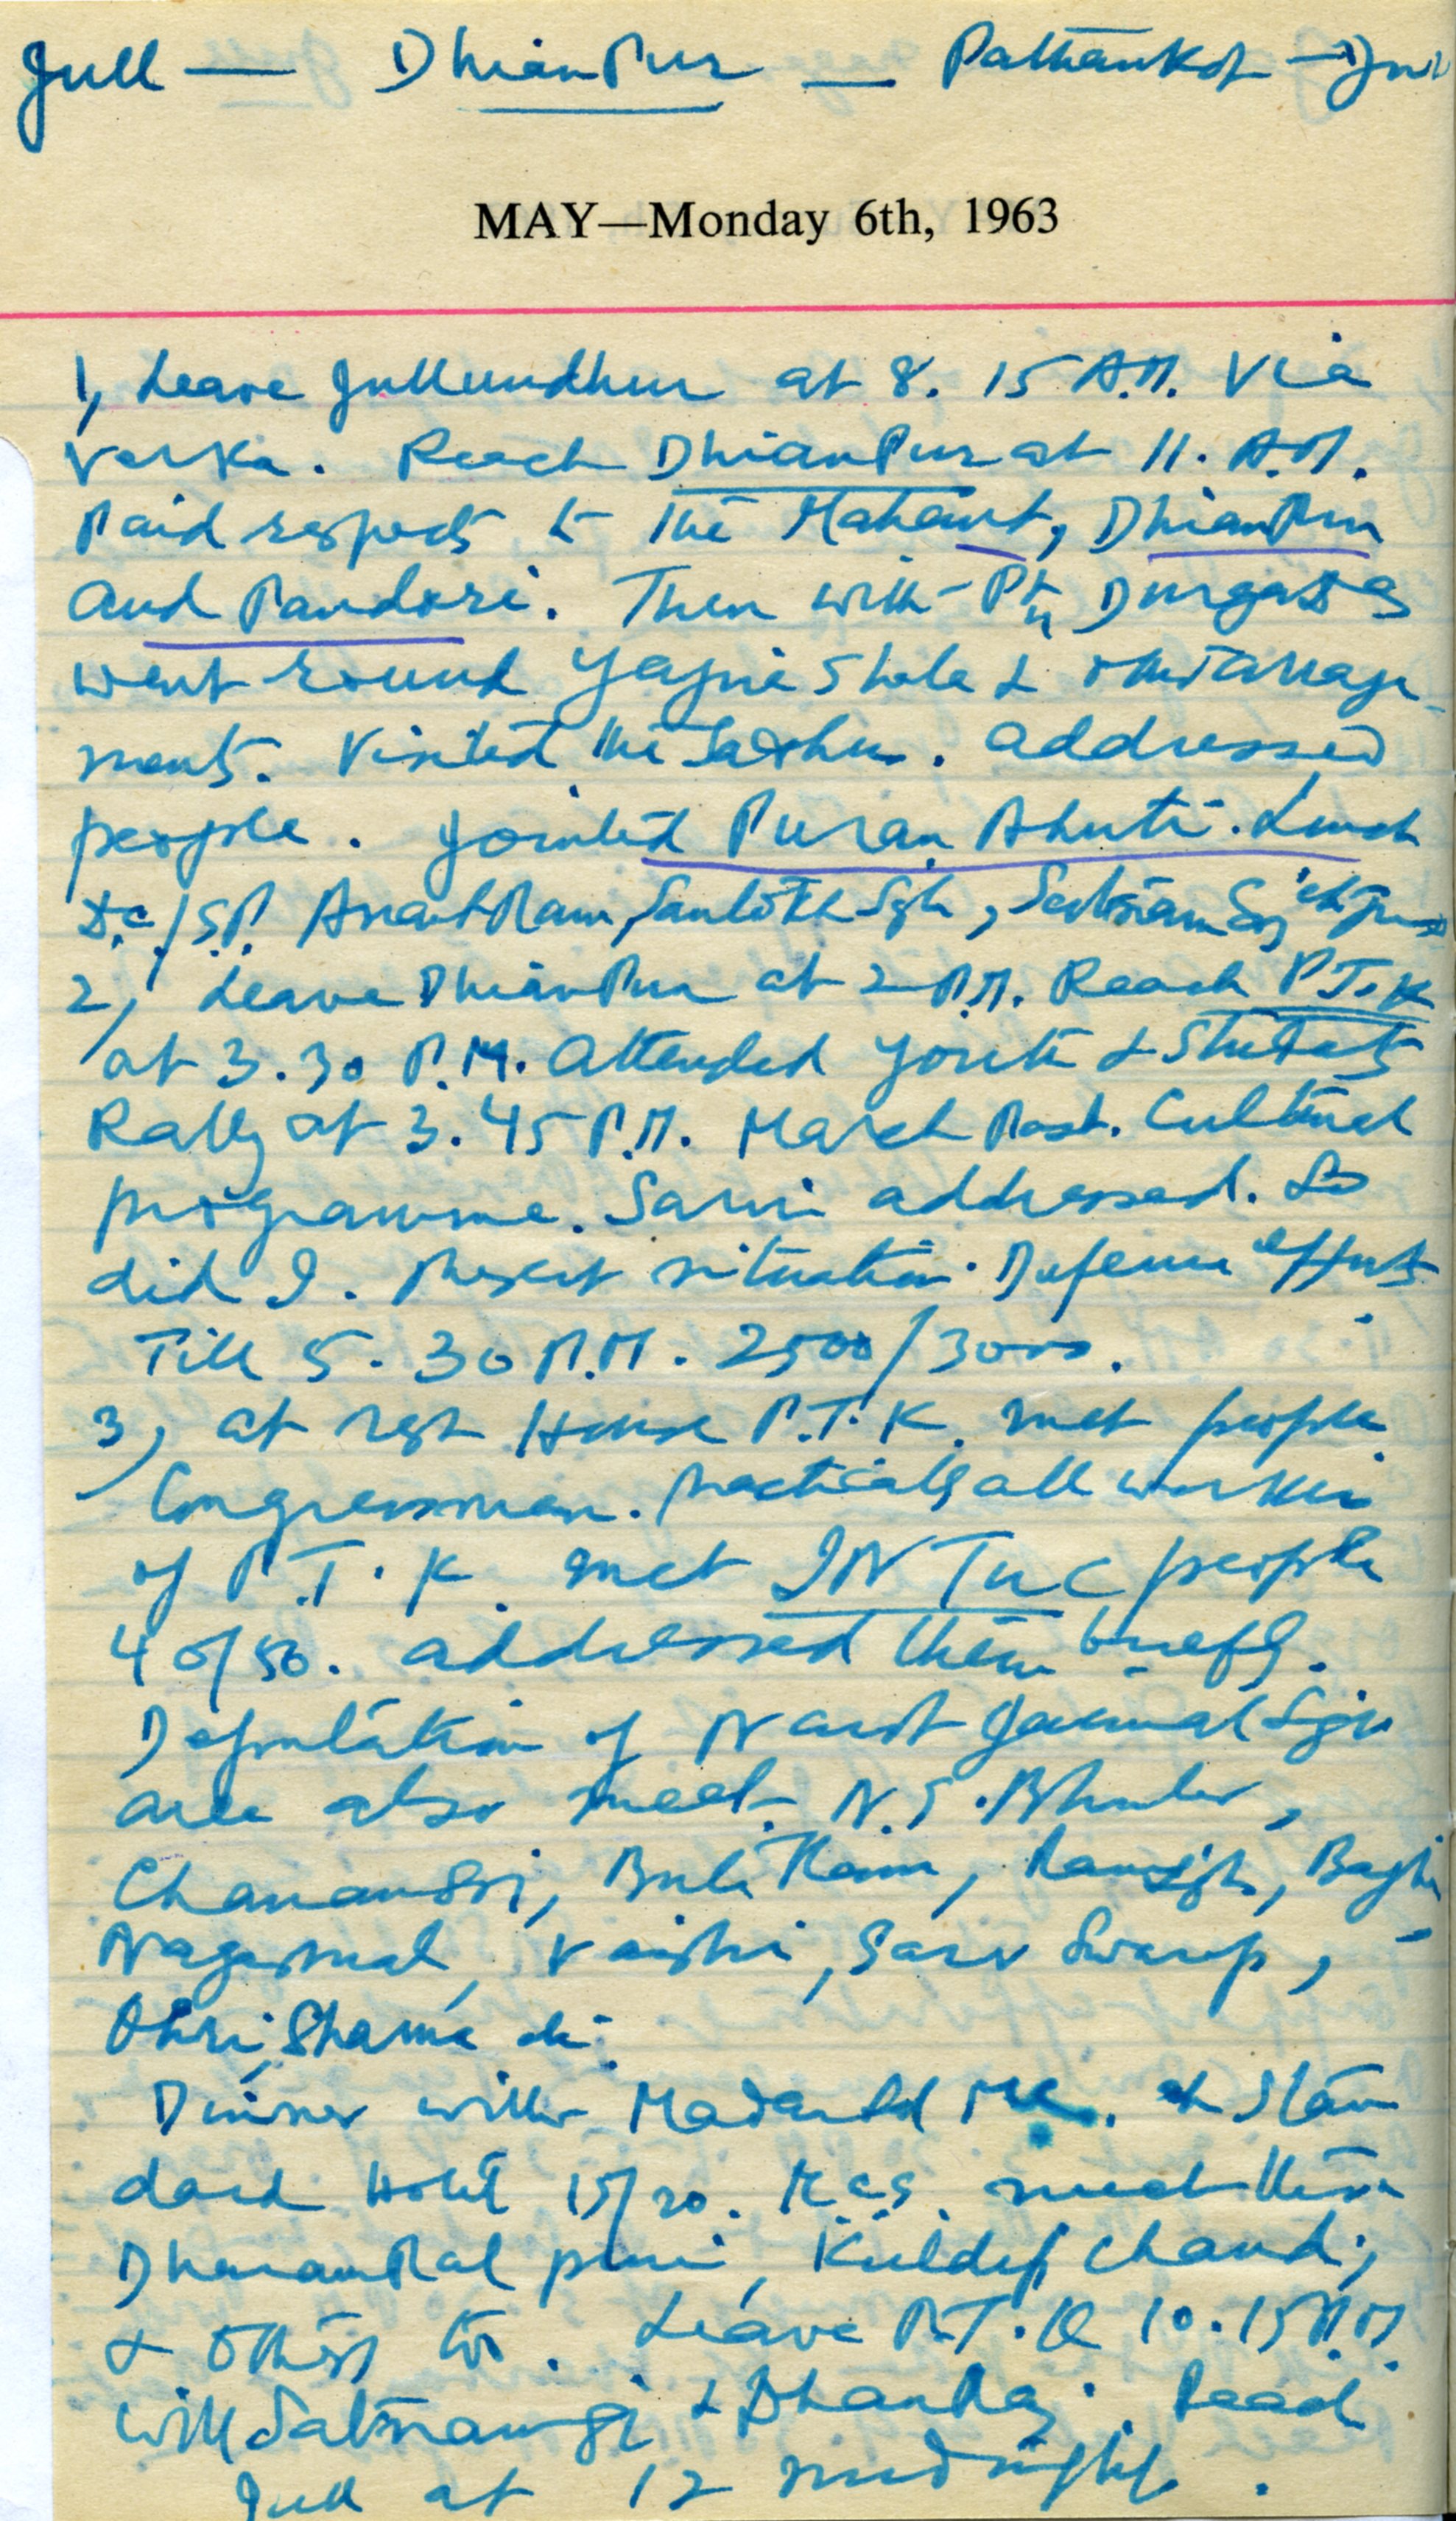 Jull — DhianPur — Pathankot — Jull
MAY—Monday 6th, 1963
1, Leave Jullundhur at 8.15 A.M. Via
Verka. Reach DhianPur at 11. A.M.
Paid respects to the Mahant, DhianPur
and Pandori. Then with Pt. Durgadas
went round Yagna Shala & other arrange-
ments. Visited the Sadhus. addressed
people. Jointed Puran Ahuti. Lunch
D.C./S.P. Anant Ram, Santokh Sgh, Satnam Sg
2, Leave DhianPur at 2 P.M. Reach P.T.K
at 3.30 P.M. Attended Youth & Students
Rally at 3.45 P.M. March Past. Cultural
programme. Sarin addressed. So
did I. Present situation. Defence efforts
Till 5.30 P.M. 2500/3000.
3, at rest House P.T.K. met people
Congressmen. Practically all workers
of P.T.K. met INTUC people
40/50. addressed them briefly.
Deputation of Narot Jaimal Sgh
area also meet. N.S. Bhuler,
Chanan Sg, Ram Sgh,
Nagarmal, Vaishi, Sarv Swarup,
Ohri, Sharma etc.
Dinner with Madan Lal M.C. at Stan
dard Hotel 15/20. M.C.s. meet there
DharamPal puri, Kuldip Chand,
& others too. Leave P.T.K 10.15 P.M.
with Satnam & DhanRaj. Reach
Jull at 12 midnight.